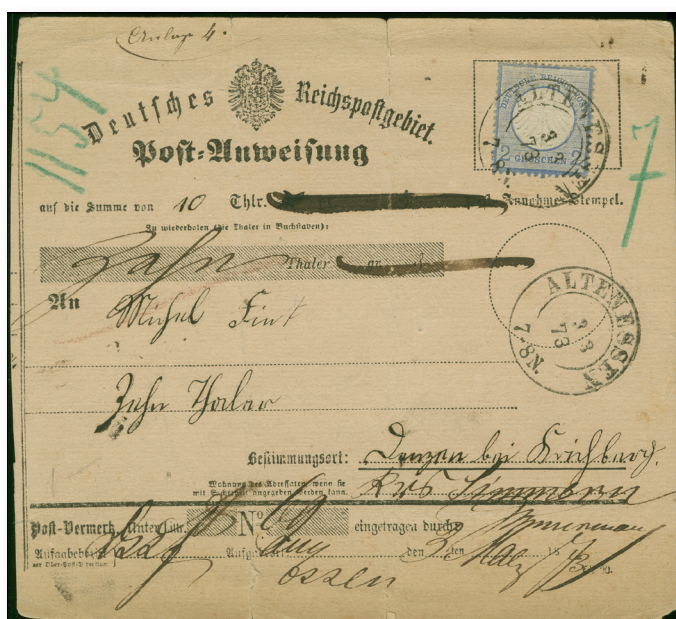 Anlage 4.
1154
Deutsches Reichspostgebiet.
Post-Anweisung
DEUTSCHE REICHSPOST
2 GROSCHEN 2
7
auf die Summe von 10 Thlr. Annahme-Stempel.
Zu wiederholen (die Thaler in Buchstaben):
Zehn Thaler
ALTENESSEN
3 3
73
7-8N
An Michel Fink
Zehn Thaler
Bestimmungsort: Denzen bei Kirchberg.
Wohnung des Adressaten, wenn sie
mit Sicherheit angegeben werden kann.
Krs Simmern
Post-Vermerk. Unter Littr. B No. eingetragen durch
Aufgabebezirk Aufg. den 3 ten 18
Essen